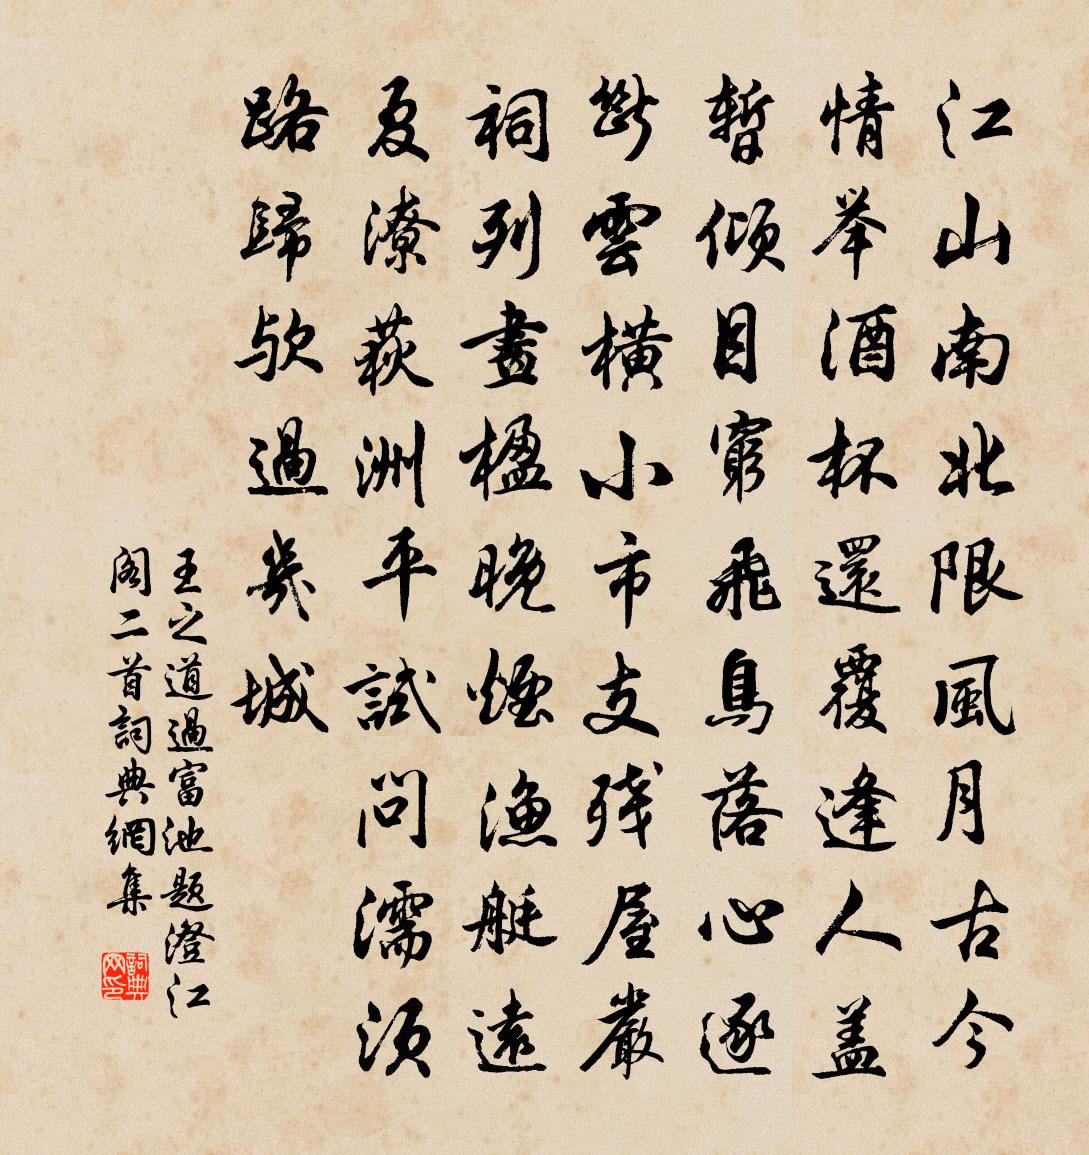 江山南北限風月古今
情举酒杯還覆逢人盖
暫傾目窮飛鳥落心逐
斷雲橫小市支残屋嚴
祠列畫楹晚煙漁艇遠
夏潦荻洲平試問濡須
路歸欤過幾城
王之道過富池題澄江
阁二首詞典網集
詞典网印